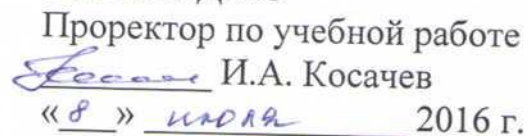 Проректор по учебной работе
И.А. Косачев
«8» июля 2016 г.